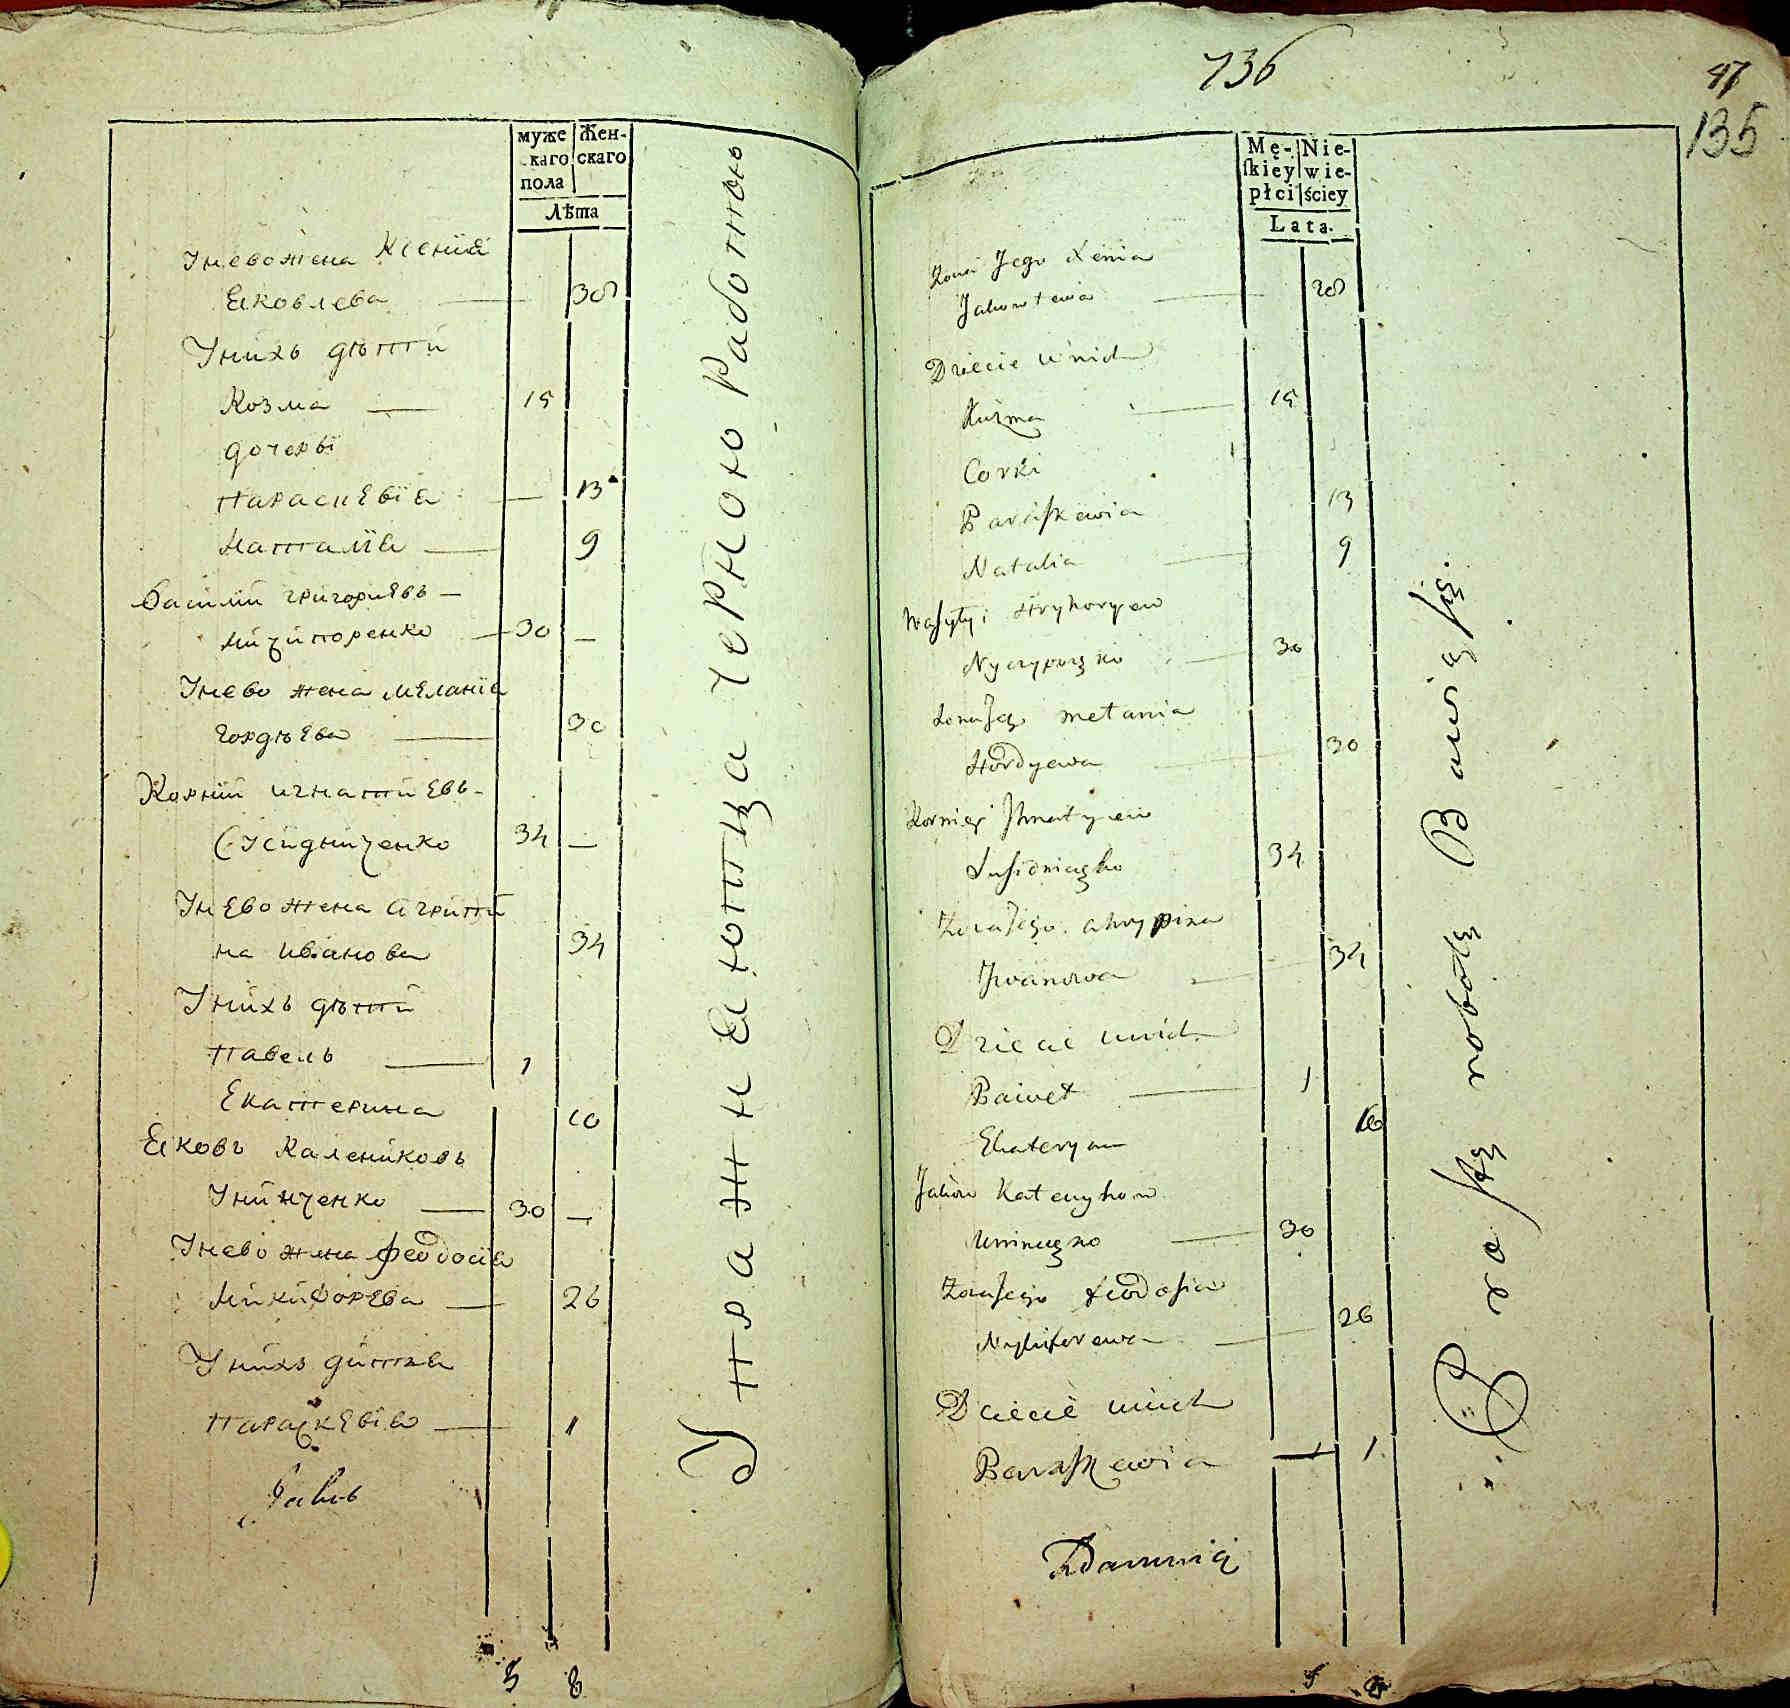 муже Жен-
скаго скаго
пола
Лѣта
Унево жена Ксенія
Яковлева 30
Унихъ дѣти
Козма 15
дочеры
Параскевія 13
Наталія 9
Василій Григориевъ
Ничипоренко 30
Унево жена Меланія
Гордѣева 30
Корній Игнатиевъ
Сусидниченко 34
Унево жена Агрипи
на Иванова 34
Унихъ дѣти
Павелъ 1
Екатерина 10
Яковъ Калениковъ
Униченко 30
Унево жена Феодосія
Никифорева 26
Унихъ дитя
Параскевія 1
5 8
Упражняютца черною работою
736
47
135
Mę- Nie-
ſkiey wie-
płci ściey
Lata.
Żona Jego Xenia
Jakowlewa 30
Dziecie u nich
Kuzma 15
Corki
Paraſkewia 13
Natalia 9
Waſyłyi Hryhoryew
Nyczyporęko 30
Żona Jego Mełania
Hordyewa 30
Korniey Jhnatyew
Suſidniczęko 34
Żona Jego Ahrypina
Jwanowa 34
Dziecie u nich
Paweł 1
Ekateryna 10
Jakow Kałenykow
Uniniczęko 30
Żona Jego Feodosia
Nykiforewa 26
Dziecie u nich
Paraſkewia 1
5 8
robotą Bawią ſię.